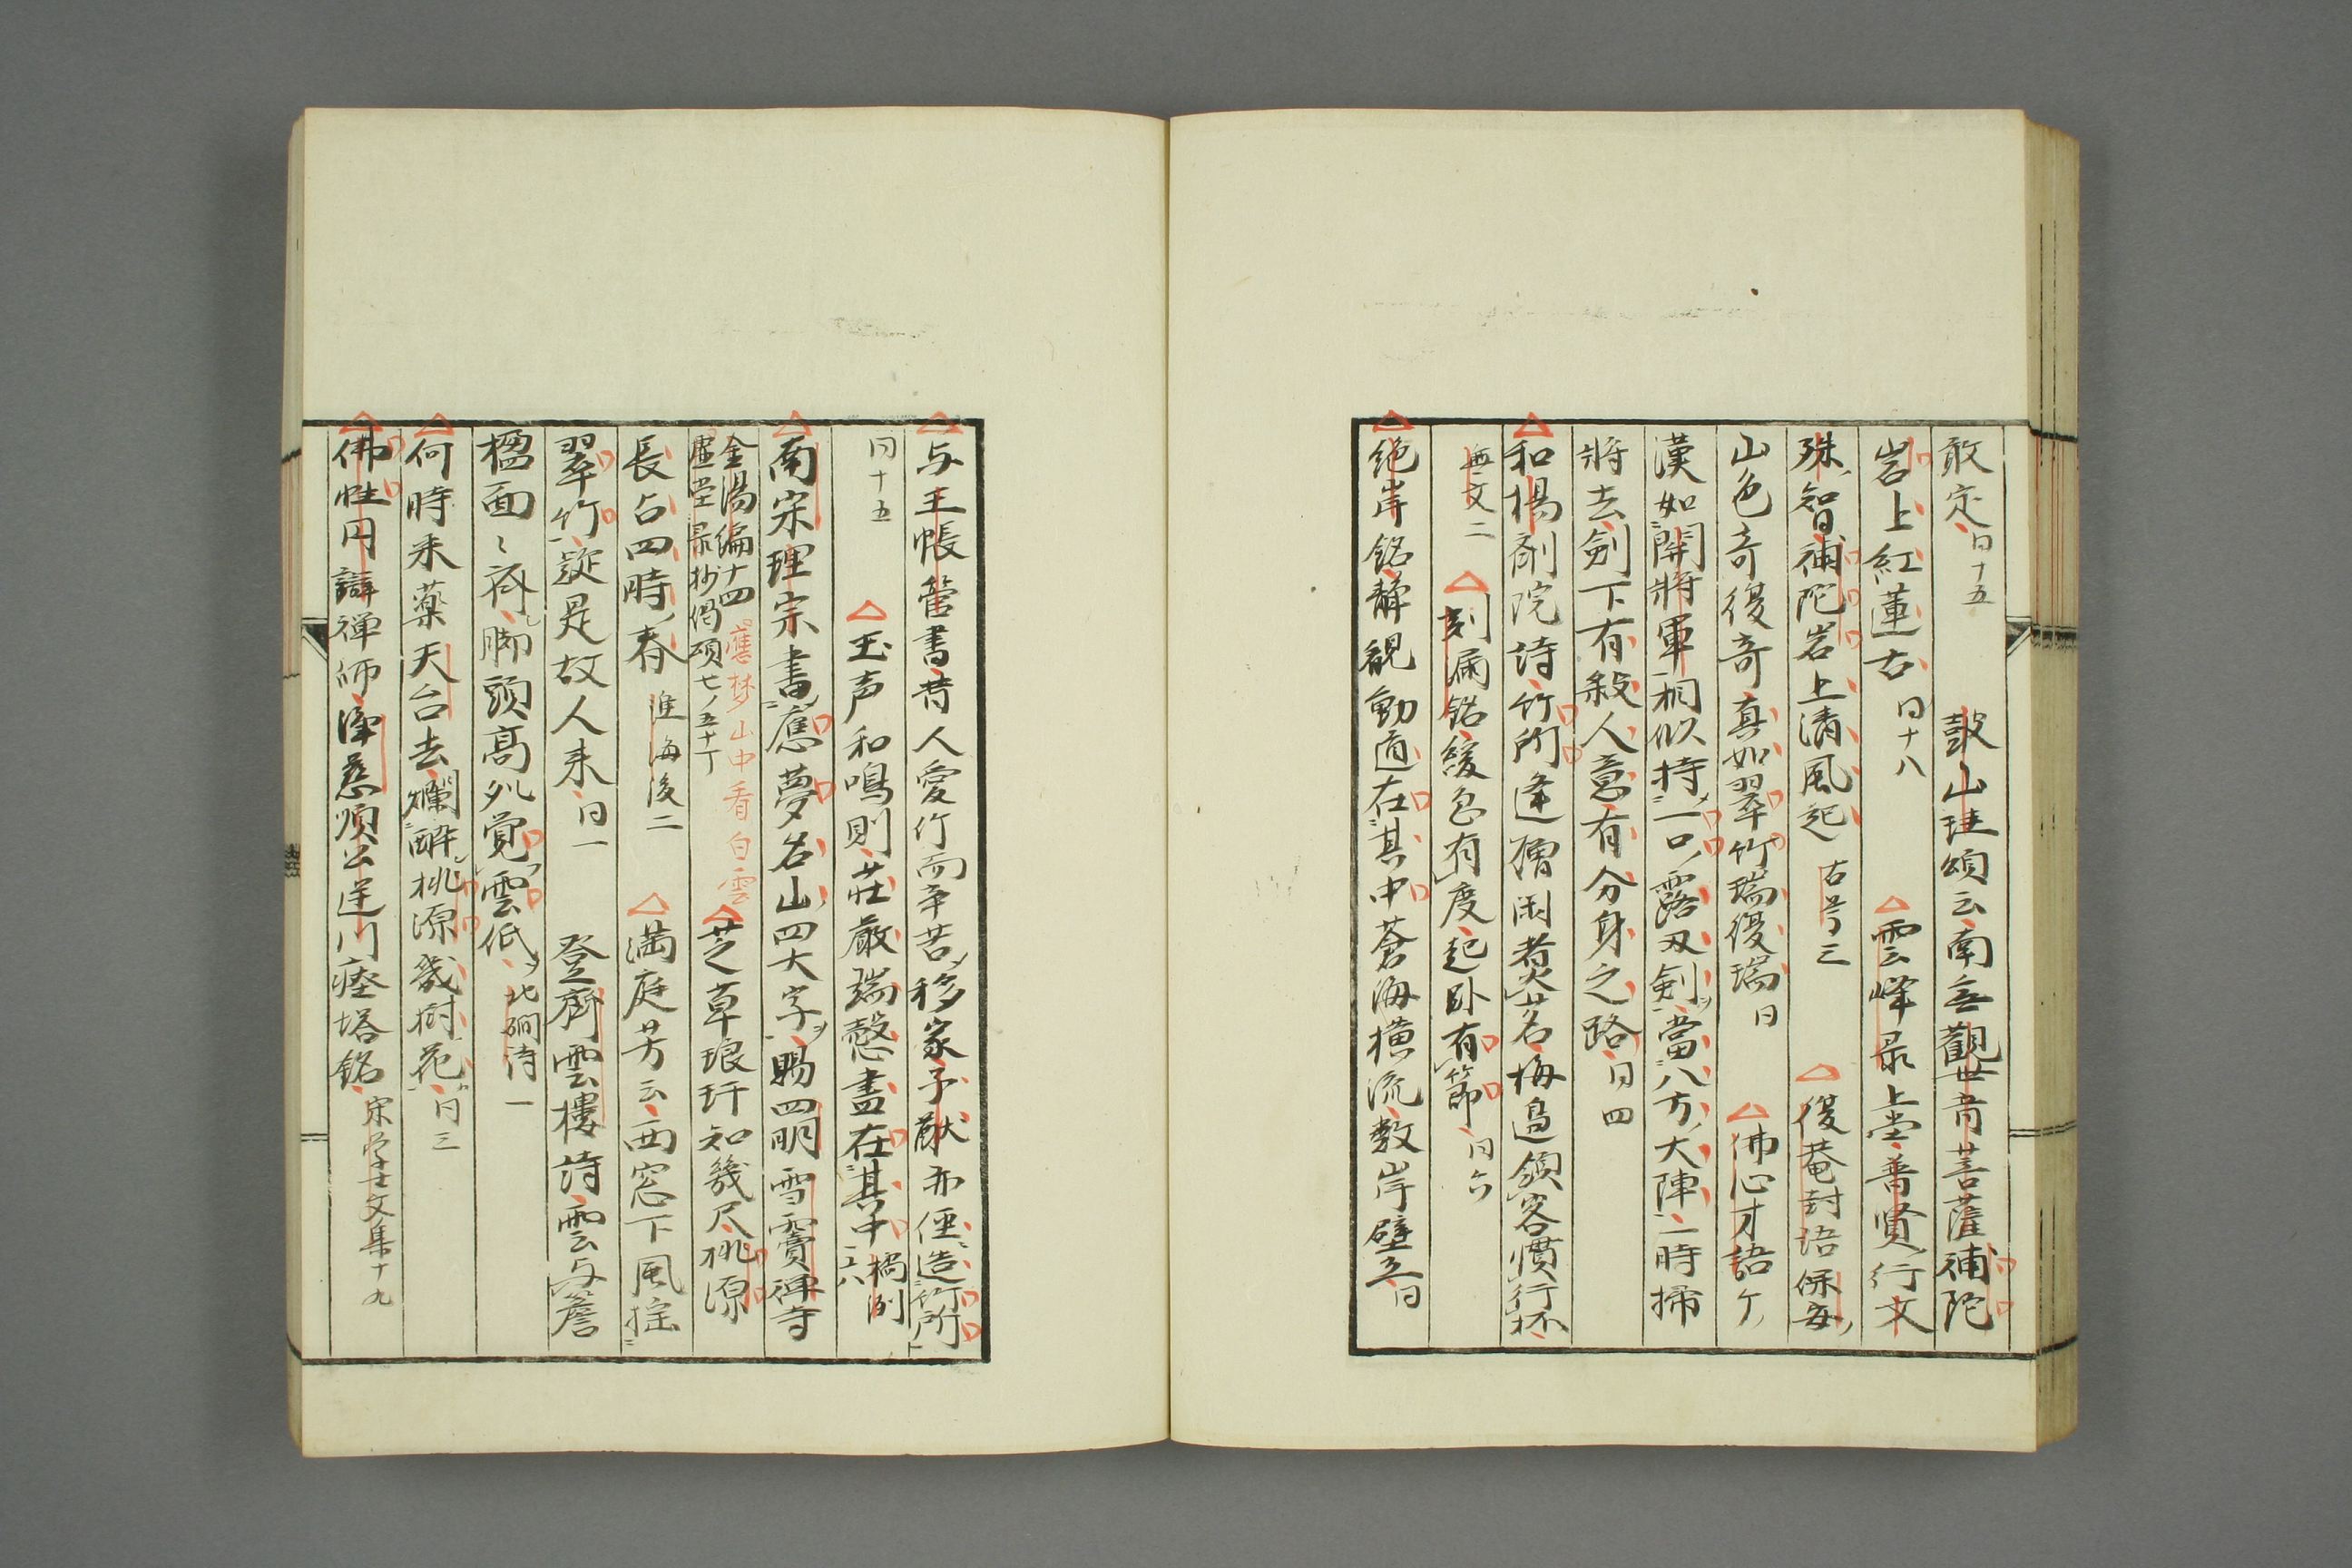 敢定同十五　鼓山珪頌云南無觀世音菩薩補陀
岩上紅蓮古同十八　雲峰录上堂普賢行文
殊智補陀岩上清風起古㝵三　復菴封語保安
山色奇復奇真如翠竹瑞復瑞同　佛心才語ケ
漢如開將軍相似持一口露刃剣當八方大陣一時掃
將去劍下有殺人意有分身之路同四
和楊剤院詩竹所逢僧闲煮茗梅邊領客慣行杯
無文二　刻漏銘緩急有度起卧有節同六
絶岸銘靜観動直在其中蒼海横流数岸壁立同
与王帳管書昔人愛竹而辛苦移家子猷亦倕造竹所
同十五　玉声和鳴則荘嚴瑞慤盡在其中橘洲二六
南宋理宗書應夢名山四大字賜四明雪竇禅寺
金湯編十四　應梦山中看白雲
虚堂录抄偈頌七ノ五十丁　芝草琅玕知幾尺桃源
長占四時春淮海後二　満庭芳云西窓下風揺
翠竹疑是故人来同一　登齊雲樓詩雲与簷
楹面〻齊脚頭高処覚雲低北磵詩一
何時釆薬天台去爛酔桃源幾樹花同三
佛性円辯禅師浄慈順公逆川瘞塔銘宋学士文集十九